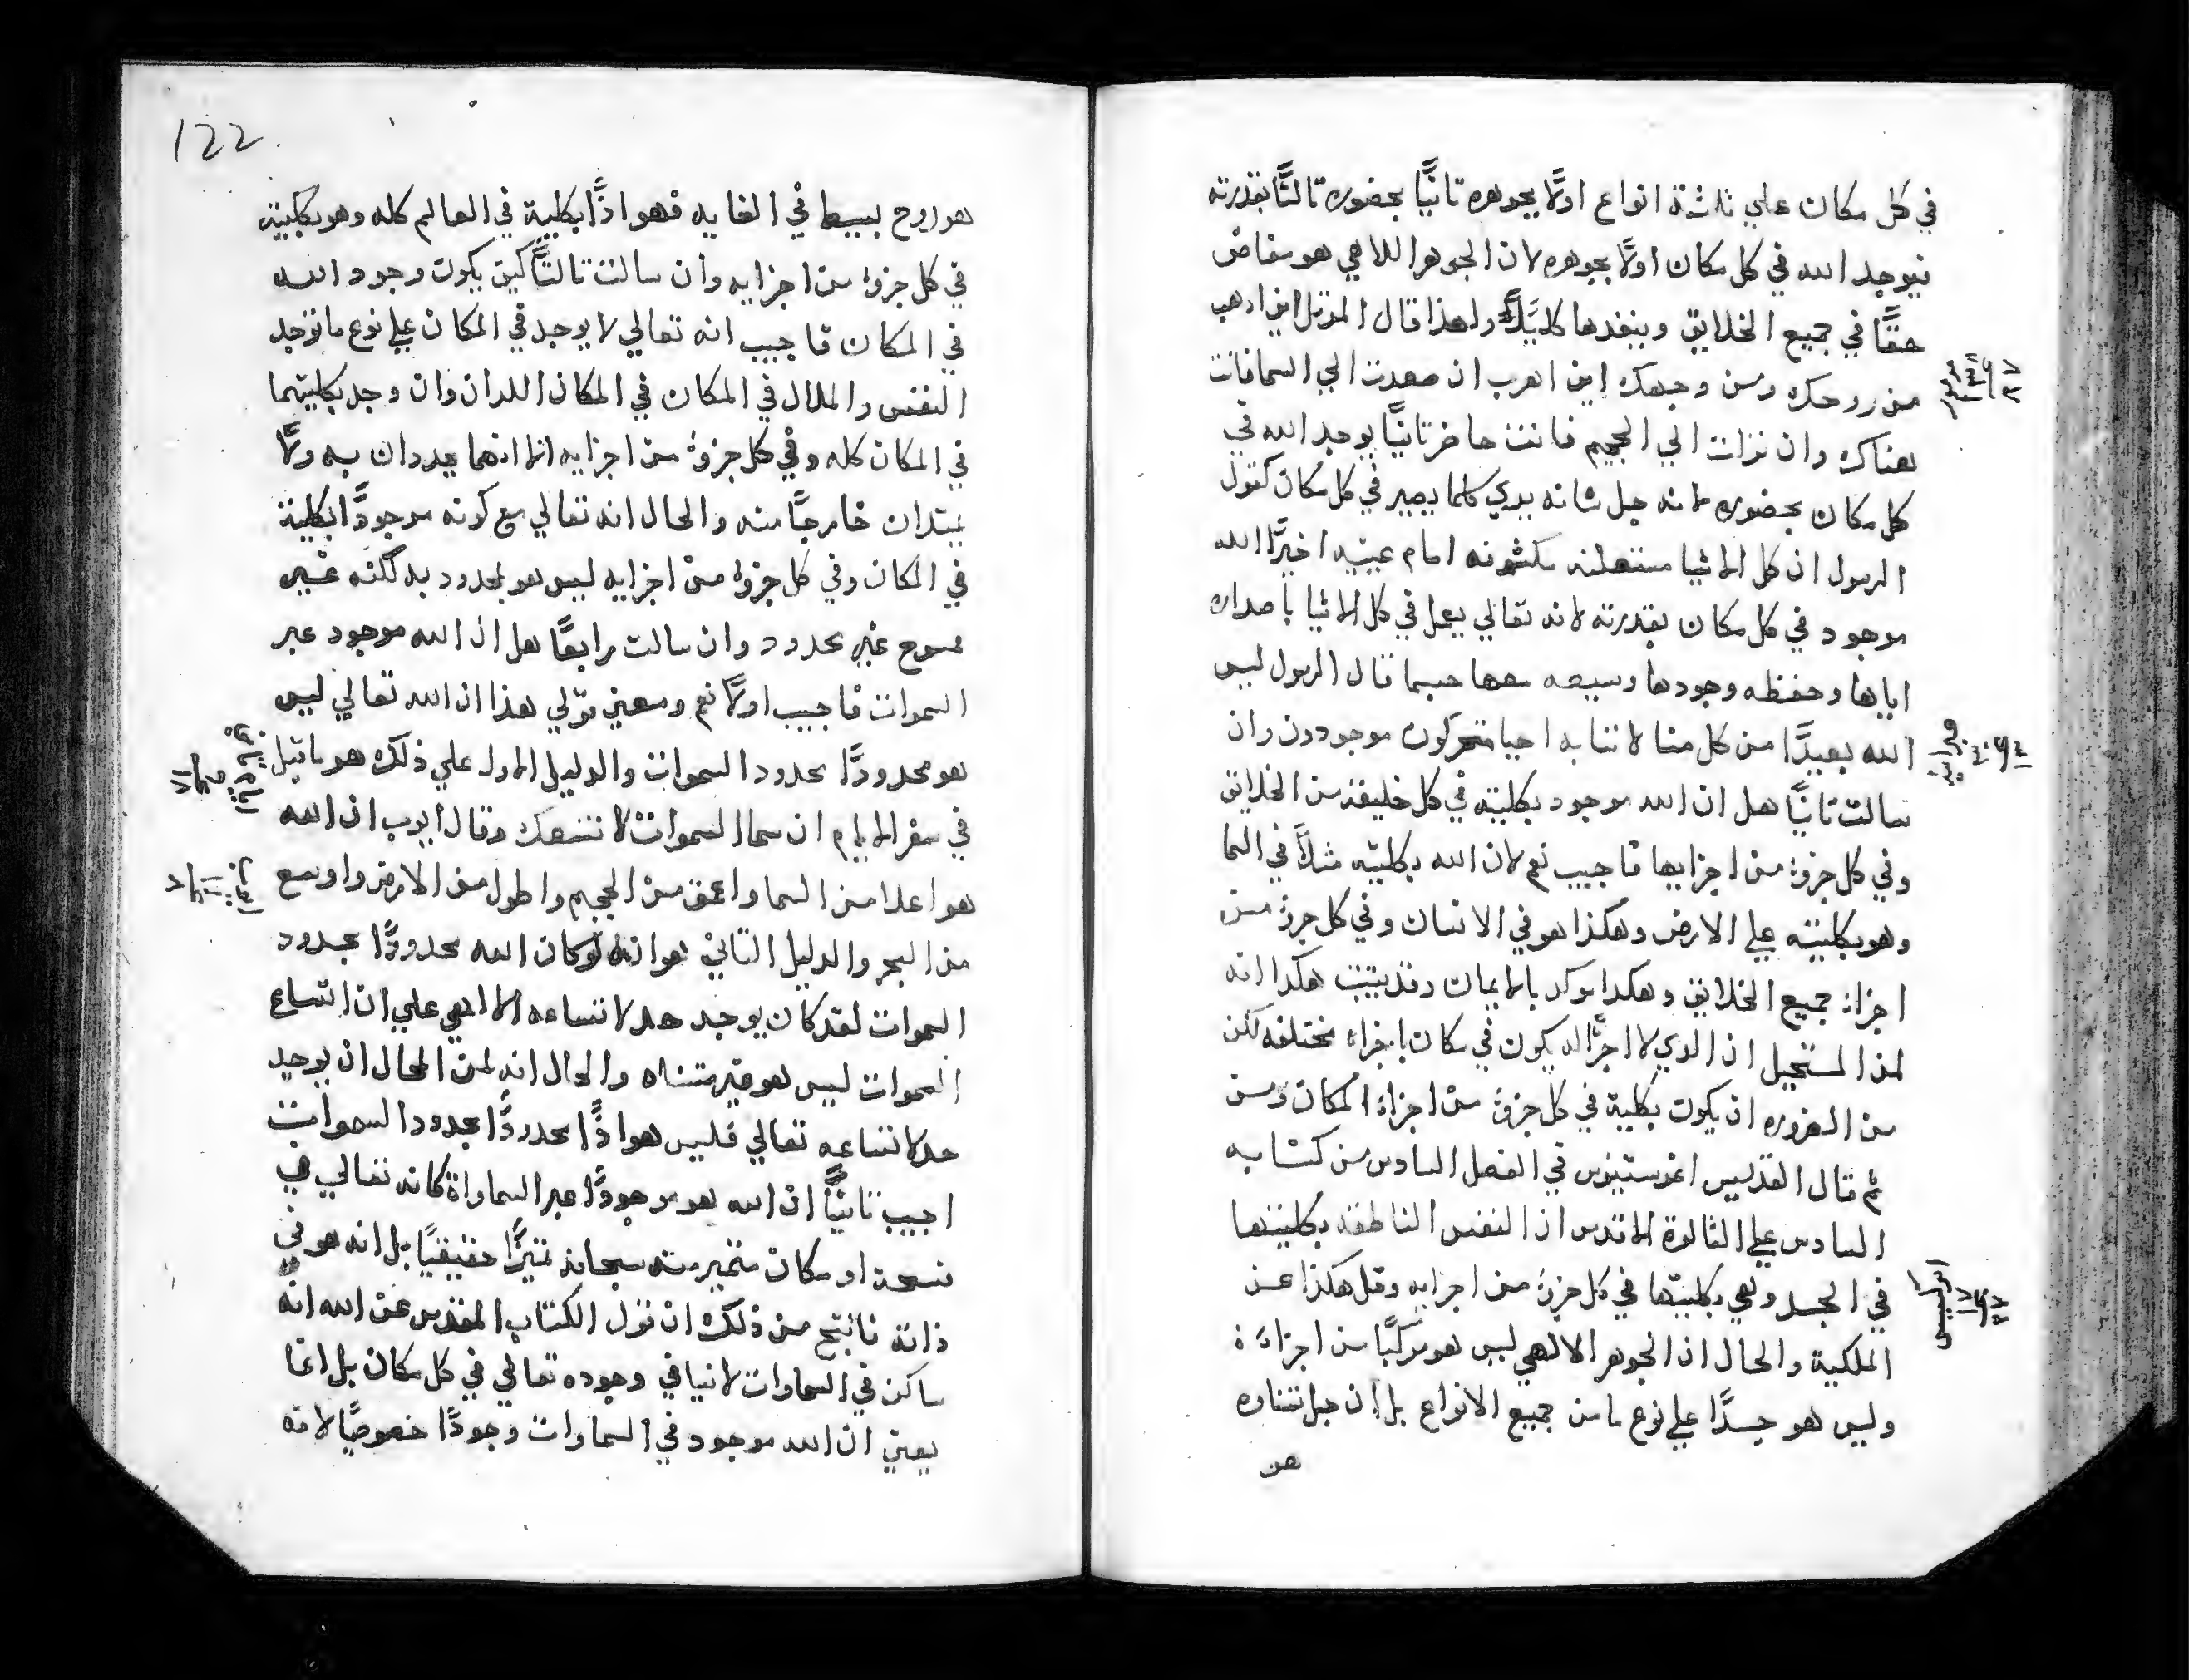 في كل مكان علي ثلثة انواع اولًا بجوهره تانيًا بحضوره تالتًا بقدرته
فيوجد الله في كل مكان اولًا بجوهره لان الجوهر اللاهي هو مفاض
حقًا في جميع الخلايق وينفدها كليًا ولهذا قال المرتل اين ادهب
من روحك ومن وجهك اين اهرب ان صعدت الي السما فانت
هناك وان نزلت الي الجحيم فانت حاضر تانيًا يوجد الله في
كل مكان بحضوره لانه جل شانه يري كلما يصير في كل مكان كقول
الرسول ان كل الاشيا مستعلنه مكشوفه امام عينيه اخيرًا الله
موجود في كل مكان بقدرته لانه تعالي يعمل في كل الاشيا باصداره
اياها وحفظه وجودها وسيعه معها حسبما قال الرسول ليس
الله بعيدًا من كل منا لاننا به احيا متحركون موجودون وان
سالت تانيًا هل ان الله موجود بكليته في كل خليقة من الخلايق
وفي كل جزوٍ من اجزايها فاجيب نعم لان الله بكليته مثلًا في السما
وهو بكليته علي الارض وهكذا هو في الانسان وفي كل جزوٍ من
اجزاء جميع الخلايق وهكدا يوكد بالايمان وقد يتبت هكدا انه
لمن المستحيل ان الدي لا اجزا له يكون في مكان باجزاء مختلفه لكن
من الضروره ان يكون بكليته في كل جزوٍ من اجزاء المكان ومن
ثم قال القديس اغوستينوس في الفصل السادس من كتابه
السادس علي الثالوة الاقدس ان النفس الناطقه بكليتها
في الجسد وهي بكليتها في كل جزوٍ من اجزايه وقل هكذا عن
الملكية والحال ان الجوهر الالهي ليس هو مركبًا من اجزاءٍ
وليس هو جسدًا علي نوع ما من جميع الانواع بل ان جل ثناوه
هو
122
هو روح بسيط في الغايه فهو اذًا بكليته في العالم كله وهو بكليته
في كل جزوٍ من اجزايه وان سالت تالتًا كيف يكون وجود الله
في المكان فاجيب انه تعالي لا يوجد في المكان علي نوع ما توجد
النفس والملاك في المكان اللدان وان وجد بكليتهما
في المكان كله وفي كل جزوٍ من اجزايه انما انهما يحددان به ولا
يمتدان خارجًا منه والحال انه تعالي مع كونه موجودًا بكليته
في المكان وفي كل جزوٍ من اجزايه ليس هو بمحدود به لكنه غير
ممسوح غير محدود وان سالت رابعًا هل ان الله موجود عبر
السموات فاجيب اولًا نعم ومعني قولي هذا ان الله تعالي ليس
هو محدودًا بحدود السموات والدليل الاول علي ذلك هو ما قيل
في سفر الايام ان سما السموات لا تسعك وقال ايوب ان الله
هو اعلا من السما واعمق من الجحيم واطول من الارض واوسع
من البحر والدليل التاني هو انه لو كان الله محدودًا بحدود
السموات لقد كان يوجد حد لاتساعه الالهي علي ان اتساع
السموات ليس هو غير متناه والحال انه لمن المحال ان يوجد
حد لاتساعه تعالي فليس هو اذًا محدودًا بحدود السموات
اجيب تانيًا ان الله هو موجودًا عبر السماواة كانه تعالي في
فسحة او مكان متميز منه سبحانه تميزًا حقيقيًا بل انه هو في
ذاته فانتج من ذلك ان قول الكتاب المقدس عن الله انه
ساكن في السماوات لا ينافي وجوده تعالي في كل مكان بل انما
يعني ان الله موجود في السماوات وجودًا خصوصيًا لانه